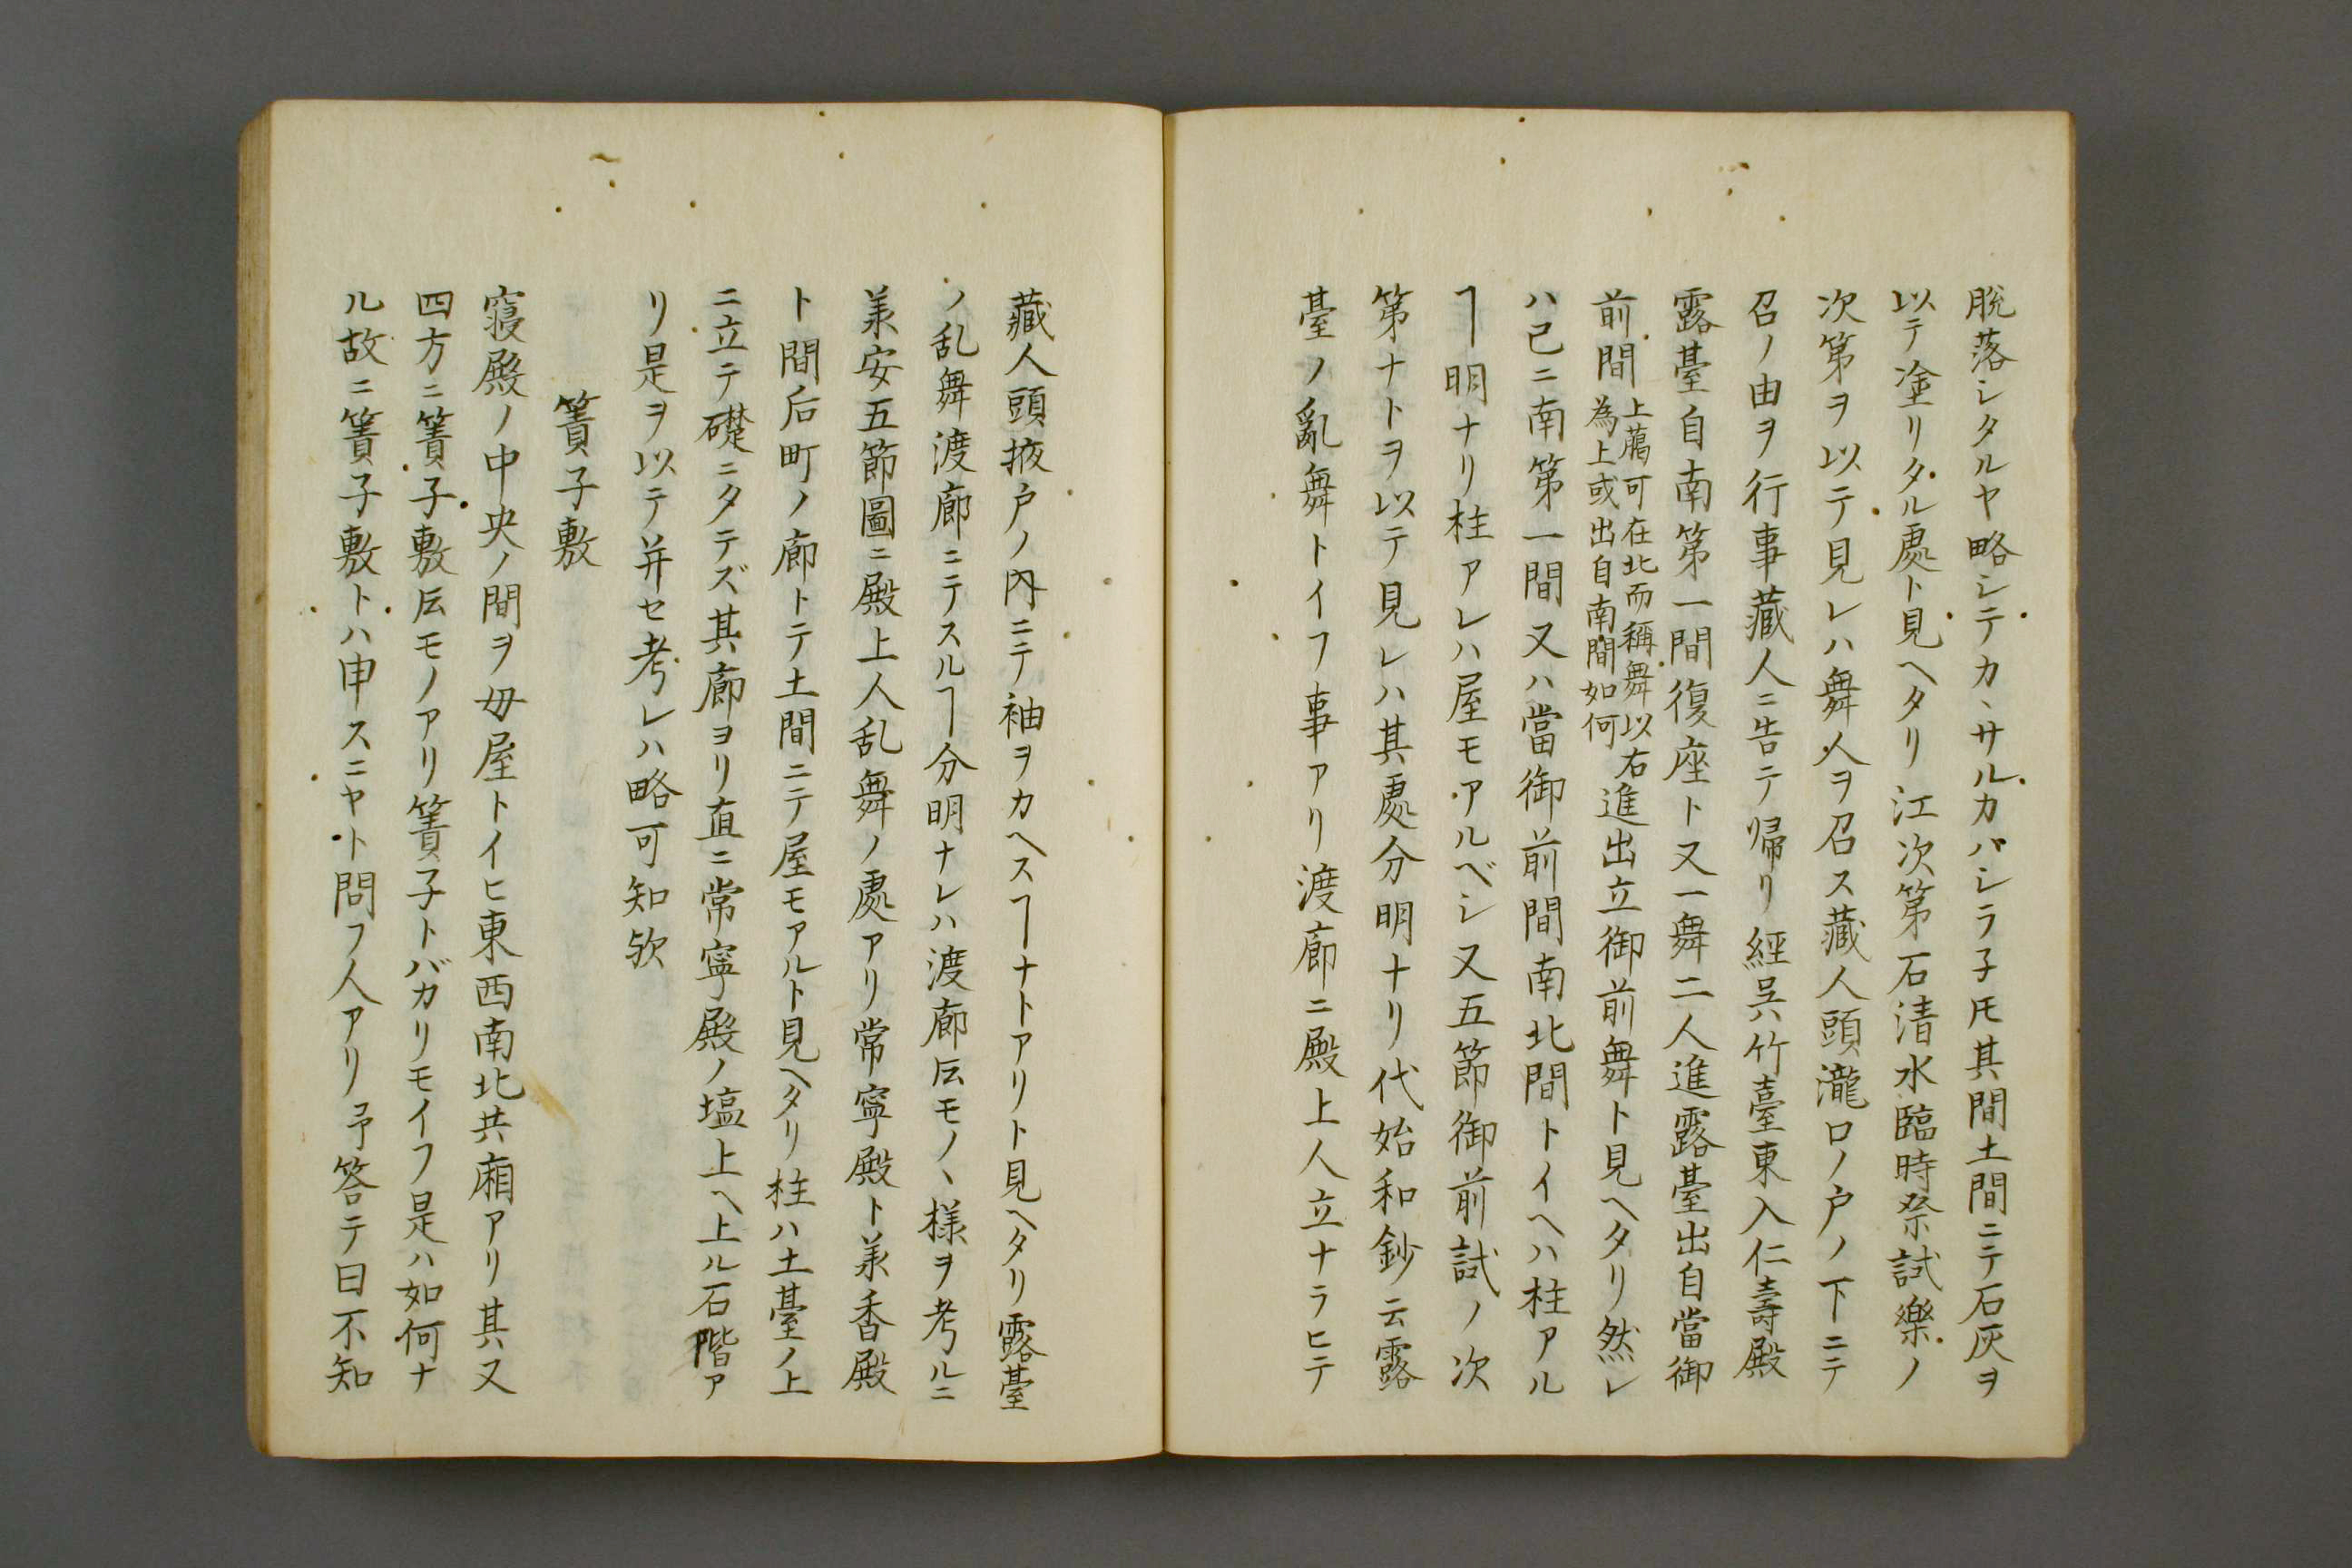 脱落シタルヤ略シテカヽサルカバシラ子𪜈其間土間ニテ石灰ヲ
以テ塗リタル處ト見ヘタリ江次第石清水臨時祭試樂ノ
次第ヲ以テ見レハ舞人ヲ召ス藏人頭瀧口ノ戸ノ下ニテ
召ノ由ヲ行事藏人ニ告テ帰リ經呉竹臺東入仁壽殿
露臺自南第一間復座ト又一舞二人進露臺出自當御
前間上﨟可在北而稱舞以右
為上或出自南間如何進出立御前舞ト見ヘタリ然レ
ハ已ニ南第一間又ハ當御前間南北間トイヘハ柱アル
ヿ明ナリ柱アレハ屋モアルベシ又五節御前試ノ次
第ナトヲ以テ見レハ其處分明ナリ代始和鈔云露
臺ノ亂舞トイフ事アリ渡廊ニ殿上人立ナラヒテ
藏人頭掖戸ノ内ニテ袖ヲカヘスヿナトアリト見ヘタリ露臺
ノ乱舞渡廊ニテスルヿ分明ナレハ渡廊𪜈モノヽ様ヲ考ルニ
羕安五節圖ニ殿上人乱舞ノ處アリ常寧殿ト羕香殿
ト間后町ノ廊トテ土間ニテ屋モアルト見ヘタリ柱ハ土臺ノ上
ニ立テ礎ニタテズ其廊ヨリ直ニ常寧殿ノ塩上ヘ上ル石階ア
リ是ヲ以テ并セ考レハ略可知欤
簀子敷
寝殿ノ中央ノ間ヲ毋屋トイヒ東西南北共廂アリ其又
四方ニ簀子敷𪜈モノアリ簀子トバカリモイフ是ハ如何ナ
ル故ニ簀子敷トハ申スニヤト問フ人アリ予答テ曰不知